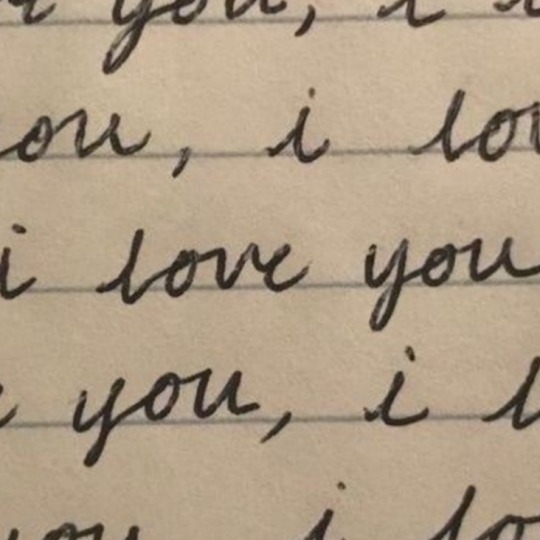 you, i
ou, i lov
i love you
you, i l
you i lo